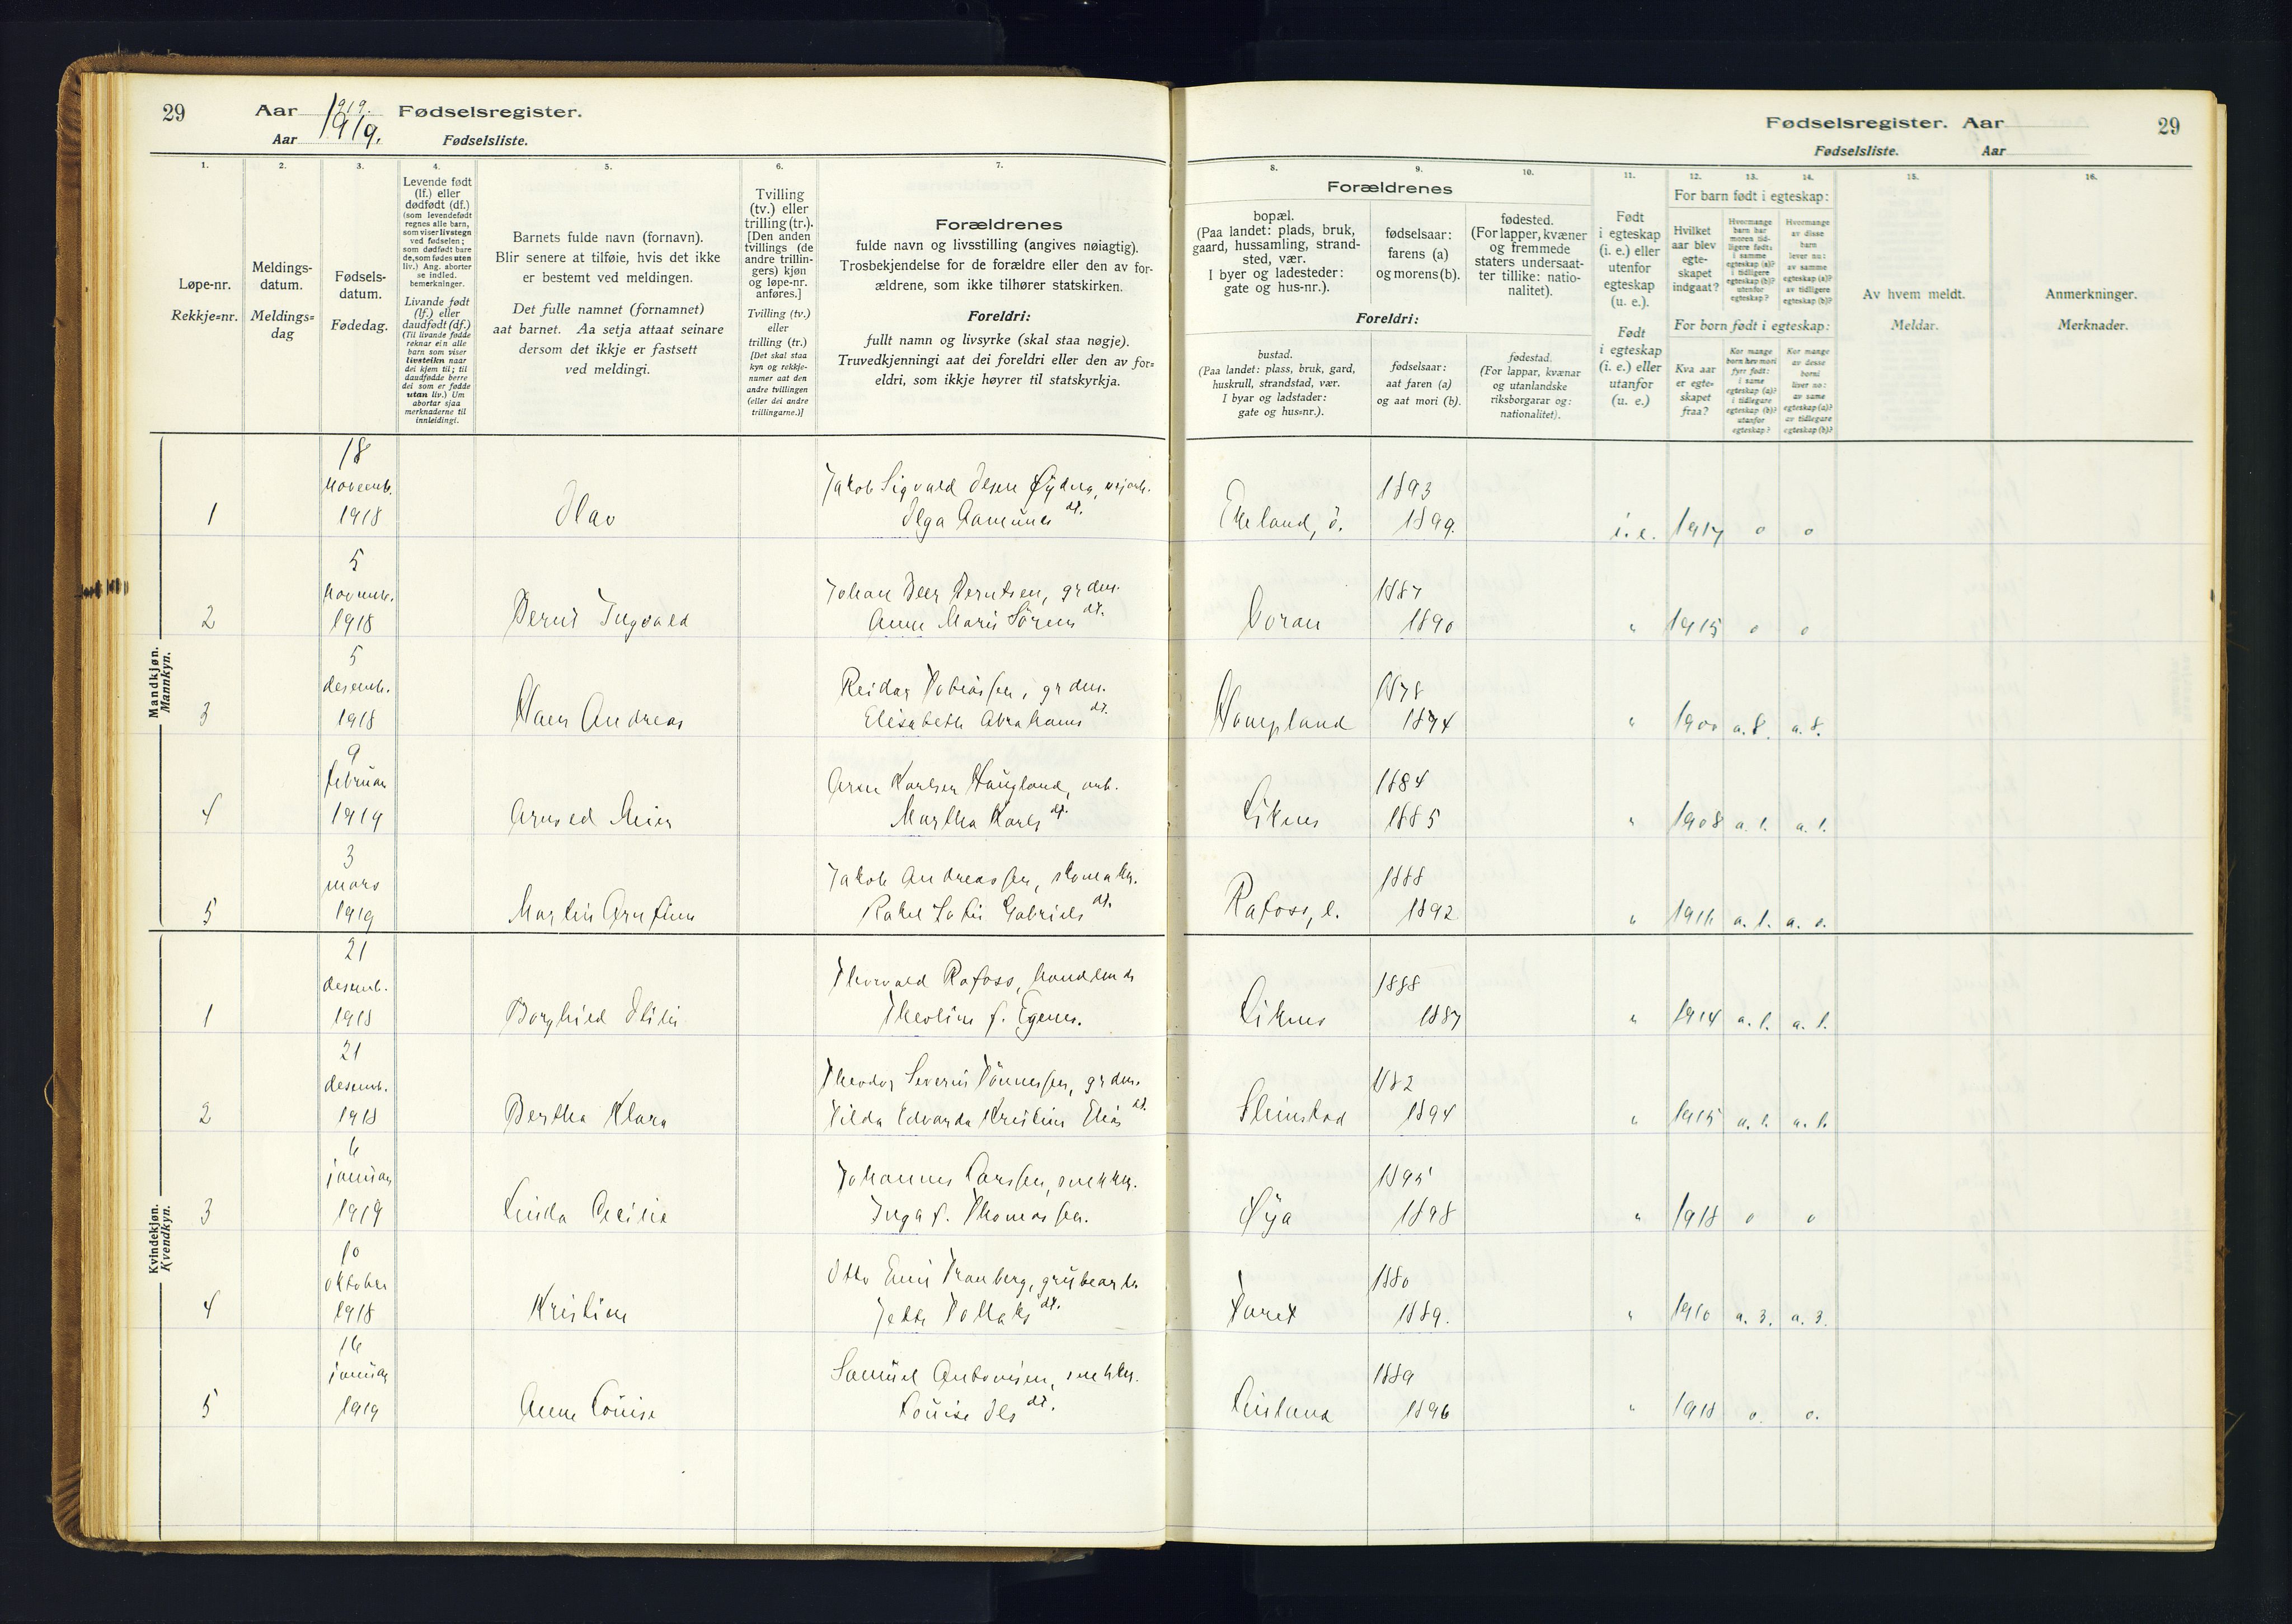 29
Aar 1919. Fødselsregister.
Aar 1919. Fødselsliste.
1.
2.
3.
4.
5.
6.
7.
Løpe-nr.
Rekkje=nr.
Meldings-
datum.
Meldings=
dag
Fødsels-
datum.
Fødedag.
Levende født
(lf.) eller
dødfødt (df.)
(som levendefødt
regnes alle barn,
som viser livstegn
ved fødselen;
som dødfødt bare
de, som fødes uten
liv.) Ang. aborter
se indled.
bemerkninger.
Livande født
(lf.) eller
daudfødt (df.)
(Til livande fødde
reknar ein alle
barn som viser
livsteikn naar
dei kjem til; til
daudfødde berre
dei som er fødde
utan liv.) Um
abortar sjaa
merknaderne til
innleidingi.
Barnets fulde navn (fornavn).
Blir senere at tilføie, hvis det ikke
er bestemt ved meldingen.
Det fulle namnet (fornamnet)
aat barnet. Aa setja attaat seinare
dersom det ikkje er fastsett
ved meldingi.
Tvilling
(tv.) eller
trilling (tr.).
[Den anden
tvillings (de
andre trillin-
gers) kjøn
og løpe-nr.
anføres.]
Tvilling (tv.)
eller
trilling (tr.)
[Det skal staa
kyn og rekkje-
numer aat den
andre tvillingen
(eller dei andre
trillingarne.)]
Forældrenes
fulde navn og livsstilling (angives nøiagtig).
Trosbekjendelse for de forældre eller den av for-
ældrene, som ikke tilhører statskirken.
Foreldri:
fullt namn og livsyrke (skal staa nøgje).
Truvedkjenningi aat dei foreldri eller den av for=
eldri, som ikkje høyrer til statskyrkja.
Mandkjøn.
Mannkyn.
18
novemb.
1 1918 Olav
Jakob Sigvald Olsen Øydna,
Olga Aamunds dt.
5
novemb.
2 1918 Bernt Ingvald
Johan Berntsen, grdm.
Anne Marie Sörens dt.
5
desemb.
3 1918 Hans Andreas
Reidar Tobiassen, grdm.
Elisabeth Abrahams dt.
9
februar
4 1919 Arnold Meier
Arne Karlsen Haugland, arb.
Martha Karls dt.
3
mars
5 1919 Martin Arnfinn
Jakob Andreassen, skomakr.
Rakel Sofie Gabriels dt.
Kvindekjøn.
Kvendkyn.
21
desemb.
1 1918 Borghild Otilie
Thorvald Rafoss, handlende
Theoline f. Egenes.
21
desemb.
2 1918 Bertha Klara
Theodor Severin Tönnessen, grdm.
Hilda Edvarda Kristine Elias dt.
6
januar
3 1919 Linda Cecilie
Johannes Larssen, snekkr.
Inga f. Thomassen.
10
oktober
4 1918 Kristine
Otto Emil Tranberg, grubearb.
Jette dt.
16
januar
5 1919 Anne Louise
Samuel Antonisen, snekkr.
Louise Ols dt.
Fødselsregister. Aar
29
Fødselsliste. Aar
8.
9.
10.
11.
12.
13.
14.
15.
16.
Forældrenes
bopæl.
(Paa landet: plads, bruk,
gaard, hussamling, strand-
sted, vær.
I byer og ladesteder:
gate og hus-nr.).
fødselsaar:
farens (a)
og morens (b).
fødested.
(For lapper, kvæner
og fremmede
staters undersaat-
ter tillike: natio-
nalitet).
Foreldri:
bustad.
(Paa landet: plass, bruk, gard,
huskrull, strandstad, vær.
I byar og ladstader:
gate og hus=nr.).
fødselsaar:
aat faren (a)
og aat mori (b).
fødestad.
(For lappar, kvænar
og utanlandske
riksborgarar og:
nationalitet).
Født
i egteskap
(i. e.) eller
utenfor
egteskap
(u. e.).
Født
i egteskap
(i. e.) eller
utanfor
(u. e.)
For barn født i egteskap:
Hvilket
aar blev
egte-
skapet
indgaat?
Hvormange
barn har
moren tid-
ligere født:
i samme
egteskap (a)?
i tidligere
egteskap (b)?
utenfor
egteskap?
Hvormange
av disse
barn
lever nu:
av samme
egteskap (a)?
av tidligere
egteskap (b)?
For born født i egteskap:
Kva aar
er egte=
skapet
fraa?
Kor mange
born hev mori
fyrr født:
i same
egteskap (a)?
i tidlegare
egteskap (b)?
utanfor
egteskap?
Kor mange
av desse
borni
liver no:
av same
egteskap (a)?
av tidlegare
egteskap (b)?
Av hvem meldt.
Meldar.
Anmerkninger.
Merknader.
1893
Eikeland, ö. 1899. i. e. 1917 0 0
1887
Doran 1890 " 1915 0 0
1878
Hompland 1874 " 1900 a. 8. a. 8.
1884
Liknes 1885 " 1908 a. 1. a. 1.
1888
Rafoss, l. 1892 " 1916 a. 1. a. 0.
1888
Liknes 1887 " 1914 a. 1. a. 1.
1882
Steinstad 1894 " 1915 a. 1. a. 1.
1895
Öya 1898 " 1918 0 0
1880
1889. " 1910 a. 3. a. 3.
1889
Lindland 1896 " 1918 0. 0.